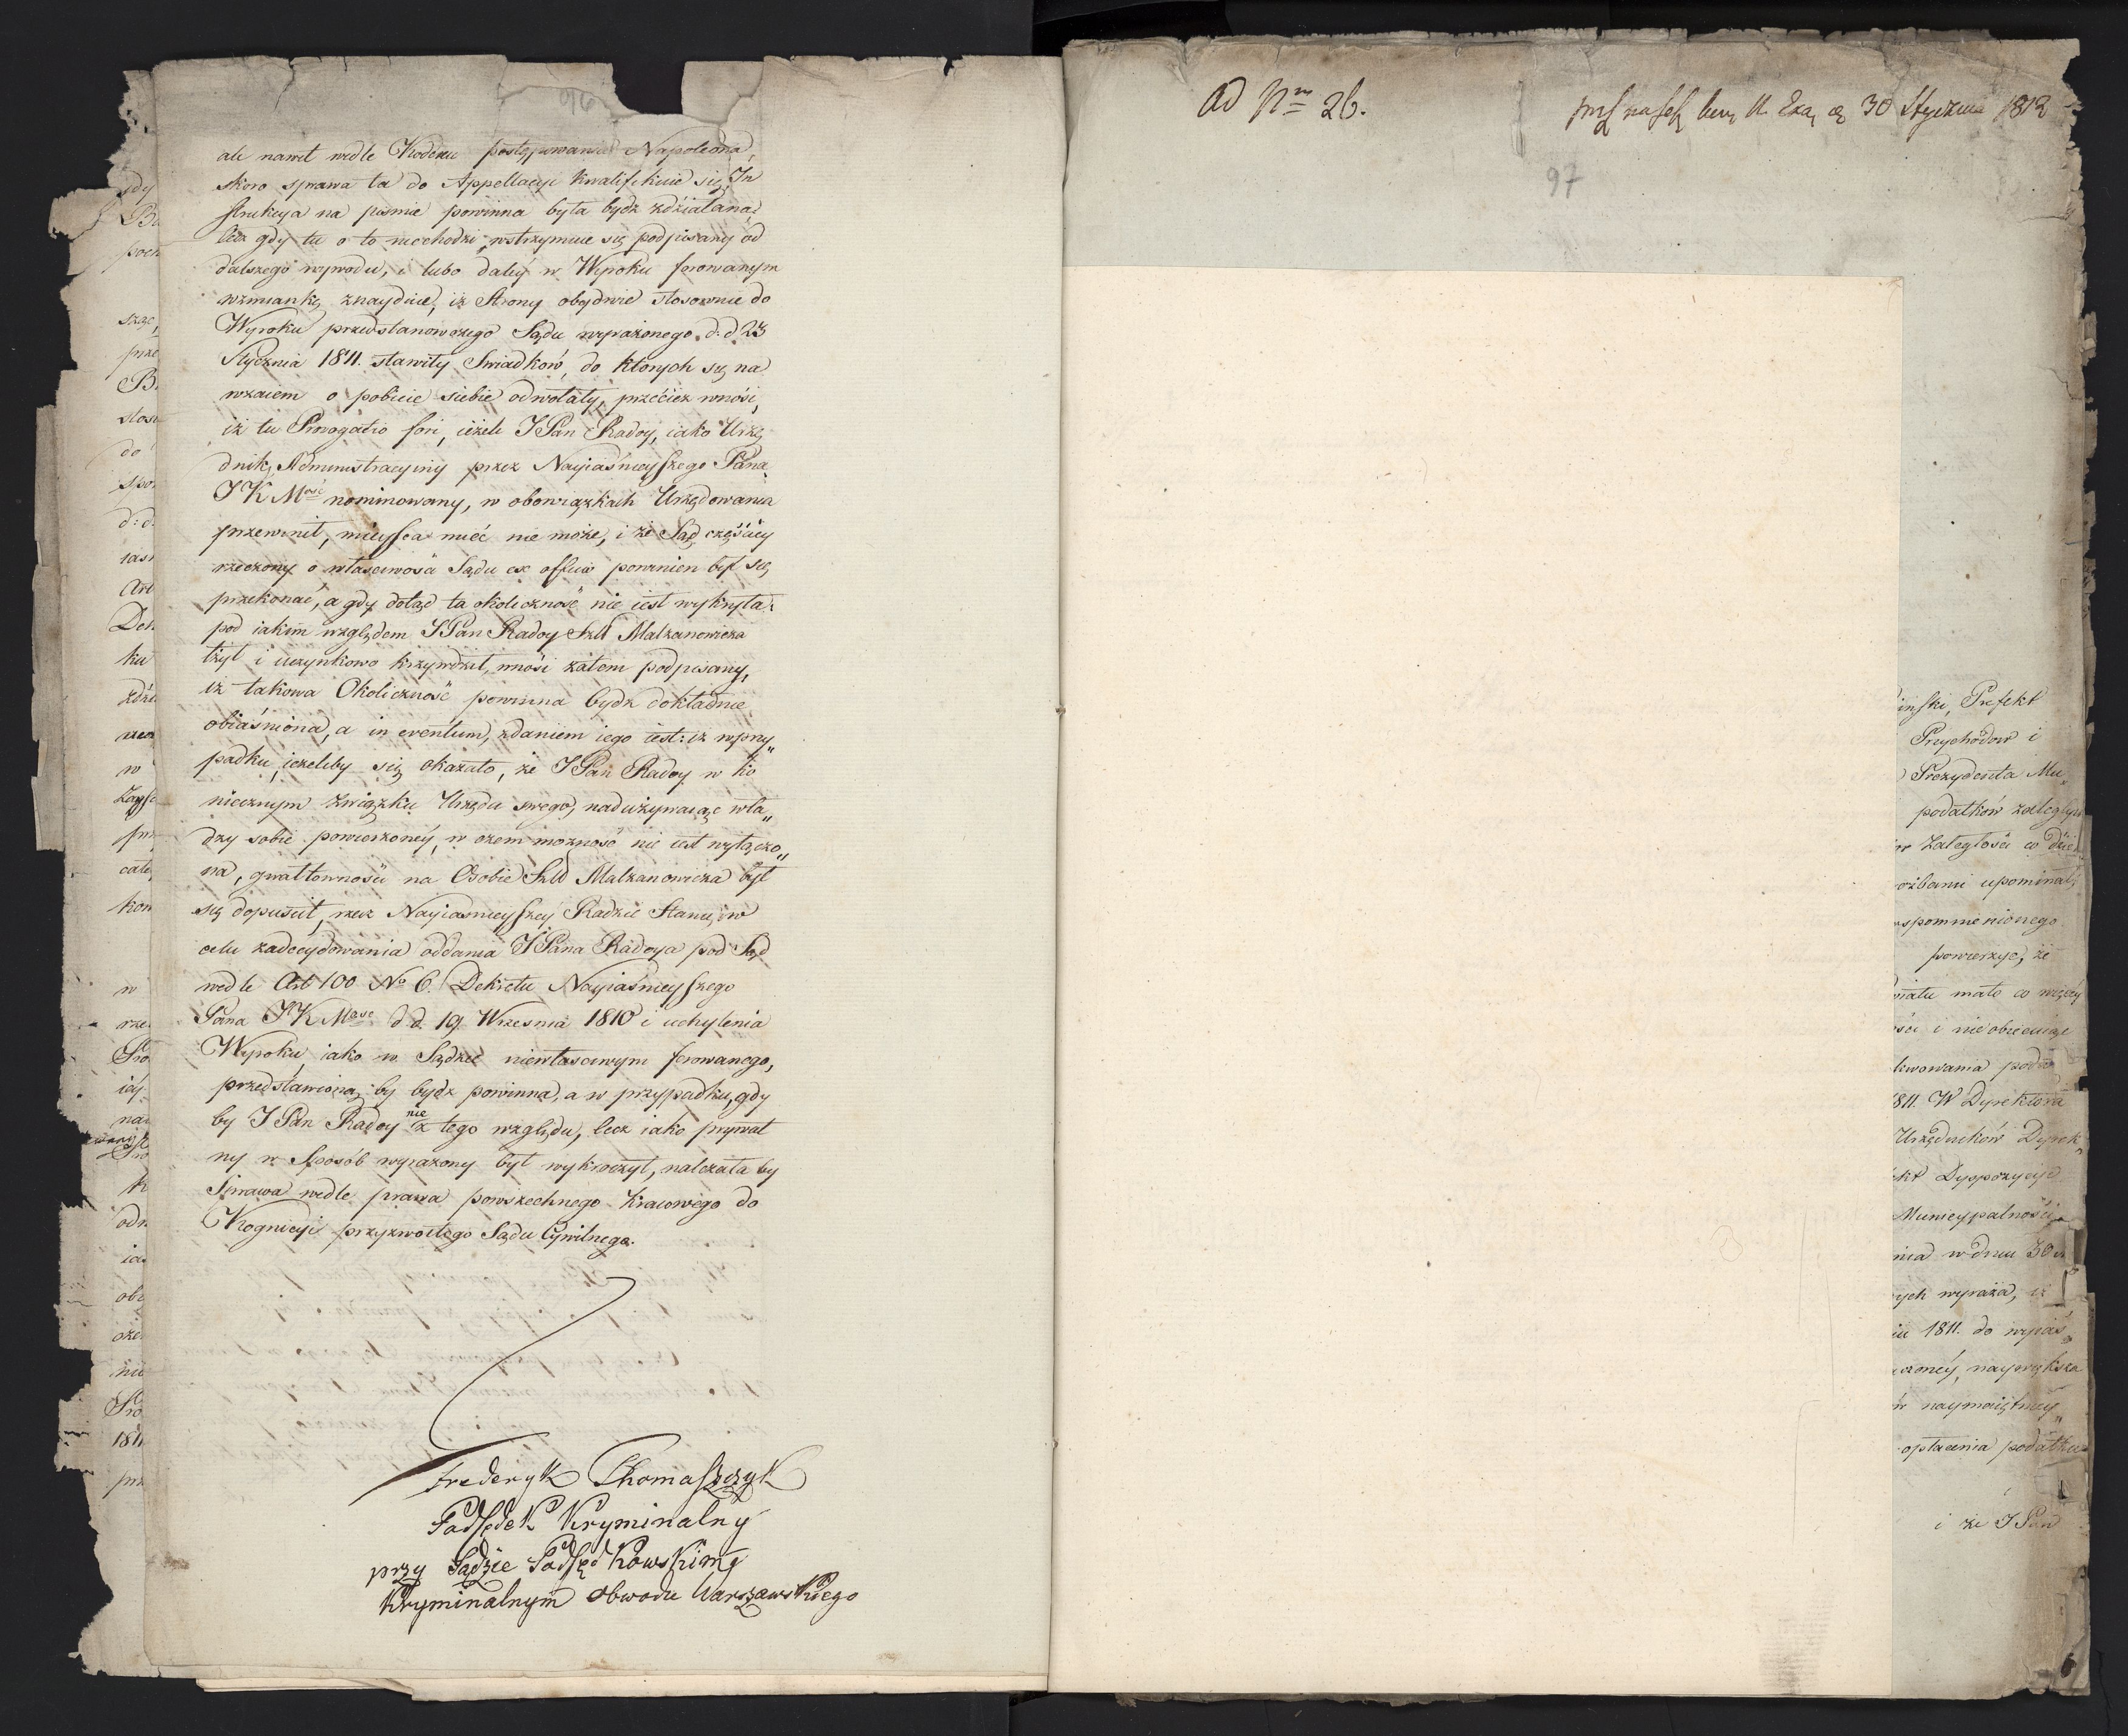 96
ale nawet wedle Kodexu postępowania Napoleona,
skoro sprawa ta do Appellacyi kwalifikuie się, In
strukcya na pismie powinna była bydz zdziałana;
lecz gdy tu o to niechodzi, wstrzymuie się podpisany od
dalszego wywodu, i lubo daléy w Wyroku ferowanym
wzmiankę znayduie, iż Strony obydwie stosownie do
Wyroku przedstanowczego Sądu wyrażonego d: d. 23
Stycznia 1811. stawiły Swiadków, do których się na
wzaiem o pobicie siebie odwołały, przećież wnośi,
iż tu Prorogatio fori, ieżeli JPan Radoy, iako Urzę
dnik Administracyiny przez Nayiaśnieyszego Pana
JK Mość nominowany, w obowiązkach Urzędowania
przewinił, mieysca mieć nie może, i że Sąd częśćiey
rzeczony o właściwośći Sądu ex officio powinien był się
przekonać, a gdy dotąd ta okoliczność nie iest wykryta:
pod iakim względem JPan Radoy Szld Malzanowicza
lżył i uczynkowo krzywdził, wnośi zatem podpisany,
iż takowa Okoliczność powinna bydz dokładnie
obiaśniona, a in eventum, zdaniem iego iest: iż w przy„
padku, ieżeliby się okazało, że JPan Radoy w ko
niecznym związku Urzędu swego, nadużywaiąc wła„
dzy sobie powierzonéy, w czem możność nie iest wyłączo„
na, gwałtownośći na Osobie Szld Malzanowicza był
się dopuśćił, rzecz Nayiasnieyszey Radzie Stanu, w
celu zadecydowania oddania JPana Radoya pod Sąd
wedle Art 100 No 6. Dekretu Nayiaśnieyszego
Pana JK Mosc d d. 19. Wrzesnia 1810 i uchylenia
Wyroku, iako w Sądzie niewłasciwym ferowanego,
przedstawioną by bydz powinna, a w przypadku, gdy
by JPan Radoy nie z tego względu, lecz iako prywat
ny w Sposób wyrażony był wykroczył, należała by
Sprawa wedle prawa powszechnego Kraiowego do
Kognicyi przyzwoitego Sądu Cywilnego.
Frederyk Thomaszczyk
Podsędek Kryminalny
przy Sądzie Podsędkowskim
Kryminalnym Obwodu Warszawskiego
ad Nm 26.
30 Stycznia 1812
97
inski, Prefekt
Przychodów i
Prezydenta Mu„
podatków zaległych
Zaległośći co dzień
oźbami upominał
wspomnionego
powierzyć, że
mało co więcéy
i nie obiecuiąc
811. W Dyrektora
Urzędników Dyrek„
kt Dyspozycye
Municypalnośći
nia w dniu 30
ych wyraża, iż
iu 1811. do
czonéy, naywiększa
naymaiętniey„
opłacenia podatku
i że JPan